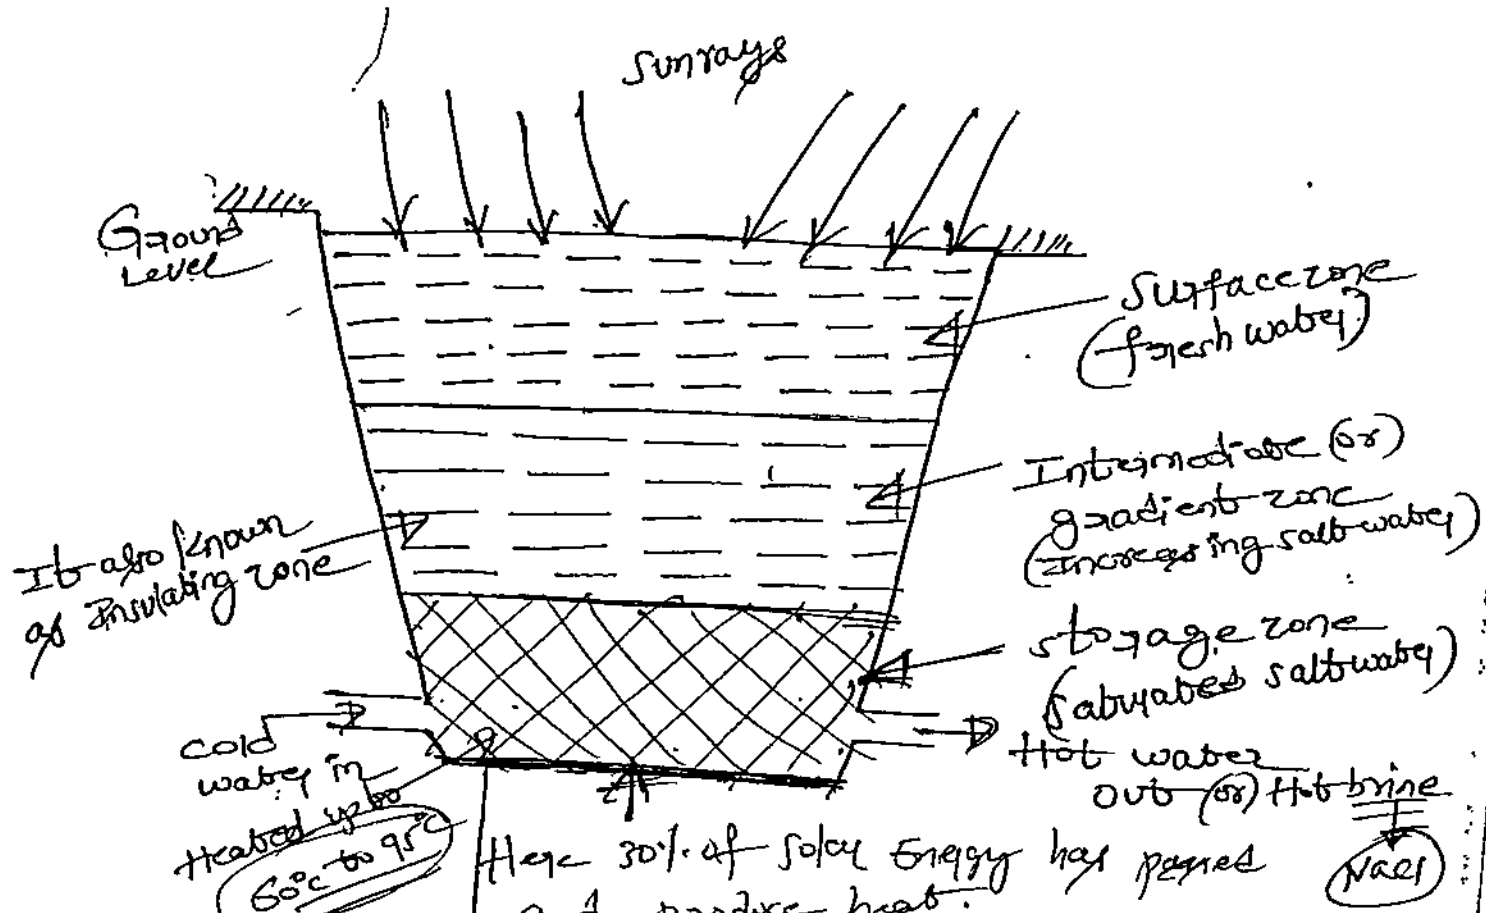 Sunrays
Ground
Level
Surface zone
(fresh water)
Intermediate (or)
gradient zone
(Increasing salt water)
It also known
as Insulating zone
storage zone
(saturated salt water)
cold
water in
Hot water
out (or) Hot brine
Heated upto
60°c to 95°c
Here 30% of solar Energy has passed
NaCl
produce heat.